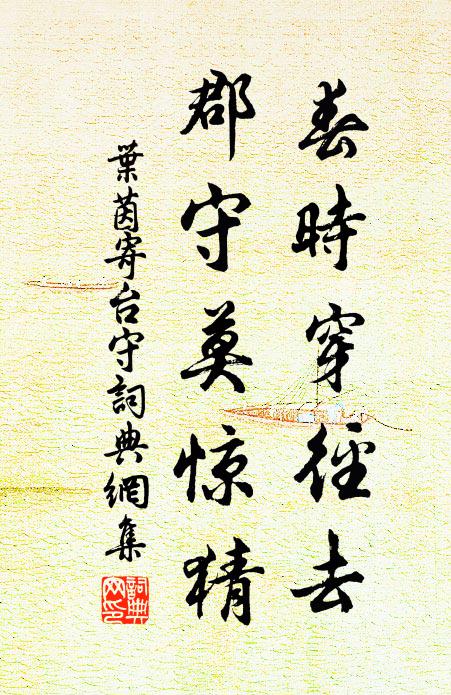 春時穿徑去
郡守莫惊猜
葉茵寄台守詞典網集
詞典网印